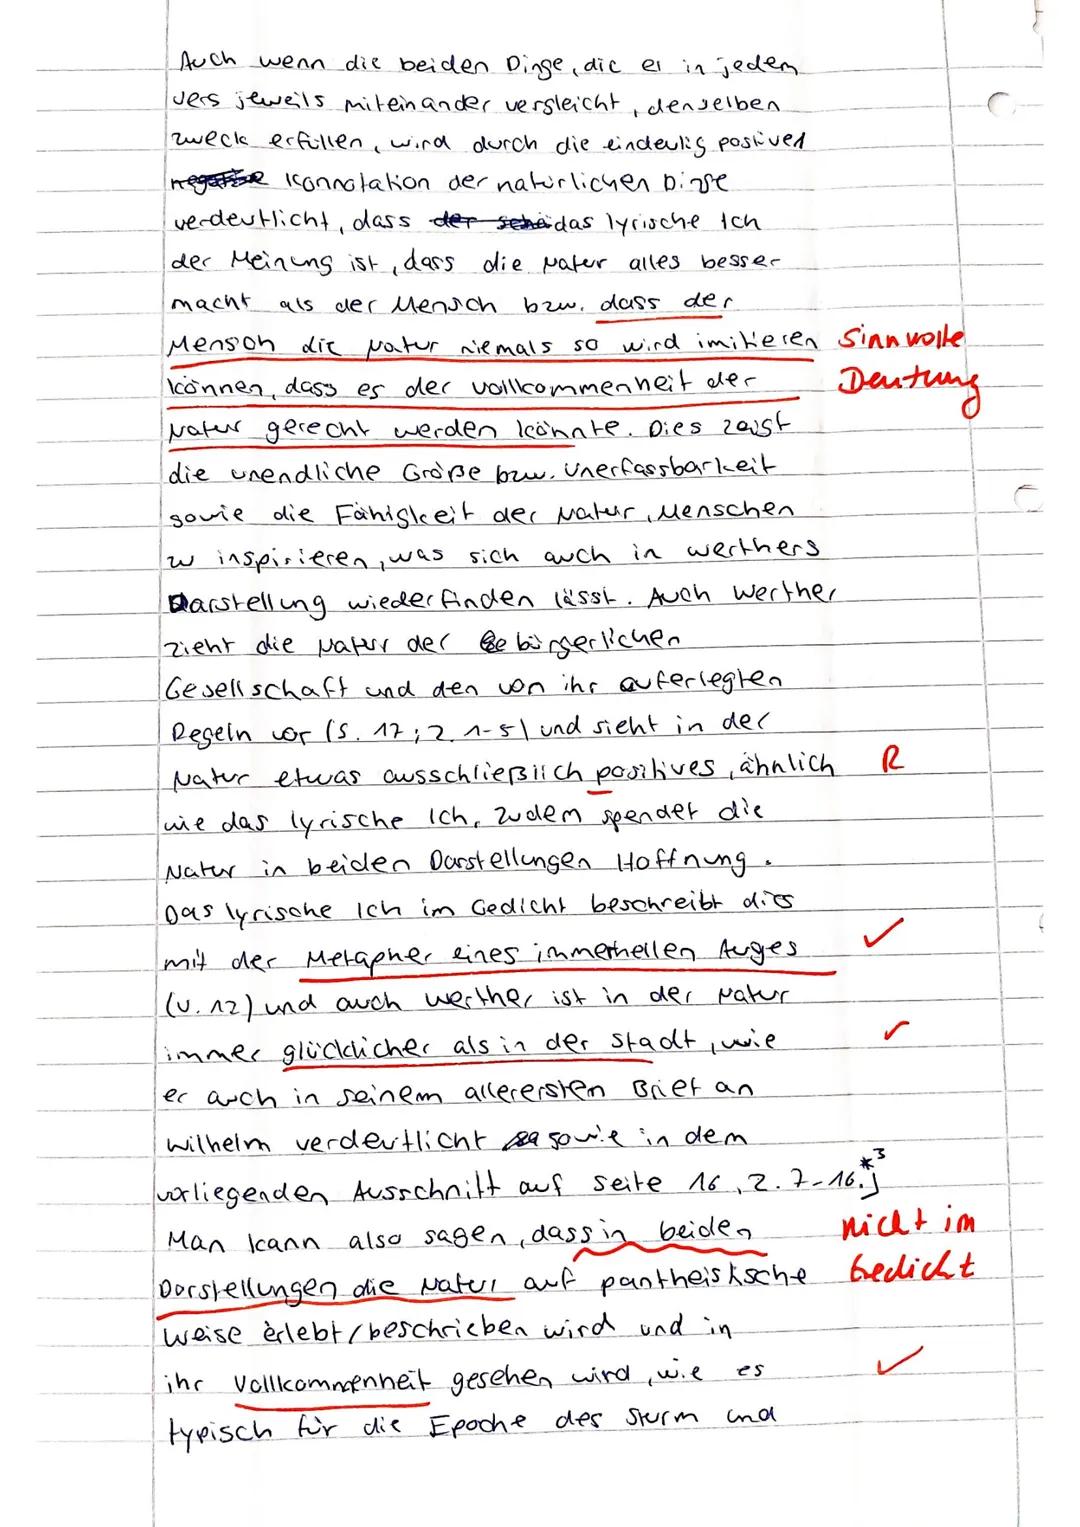 Auch wenn die beiden Dinge, die er in jedem
Vers jeweils miteinander vergleicht, denselben
zweck erfüllen, wird durch die eindeutig positiven
negative Konnotation der natürlichen Dinge
verdeutlicht, dass der das lyrische Ich
der Meinung ist, dass die Natur alles besser
macht als der Mensch bzw. dass der
Mensch die Natur niemals so wird imitieren Sinnvolle
können, dass es der Vollkommenheit der Deutung
Natur gerecht werden könnte. Dies zeigt
die unendliche Größe bzw. Unerfassbarkeit
sowie die Fähigkeit der Natur, Menschen
zu inspirieren, was sich auch in Werthers
Darstellung wiederfinden lässt. Auch Werther
zieht die Natur der bürgerlichen
Gesellschaft und den von ihr auferlegten
Regeln vor (S. 17; Z. 1-5) und sieht in der
Natur etwas ausschließlich positives, ähnlich R
wie das lyrische Ich. Zudem spendet die
Natur in beiden Darstellungen Hoffnung.
Das lyrische Ich im Gedicht beschreibt dies
mit der Metapher eines immerhellen Auges ✓
(V. 12) und auch Werther ist in der Natur
immer glücklicher als in der Stadt, wie ✓
er auch in seinem allerersten Brief an
Wilhelm verdeutlicht sowie in dem
vorliegenden Ausschnitt auf Seite 16, Z. 7-16. *3
Man kann also sagen, dass in beiden nicht im
Darstellungen die Natur auf pantheistische Gedicht
Weise erlebt/beschrieben wird und in
ihr Vollkommenheit gesehen wird, wie es ✓
typisch für die Epoche des Sturm und